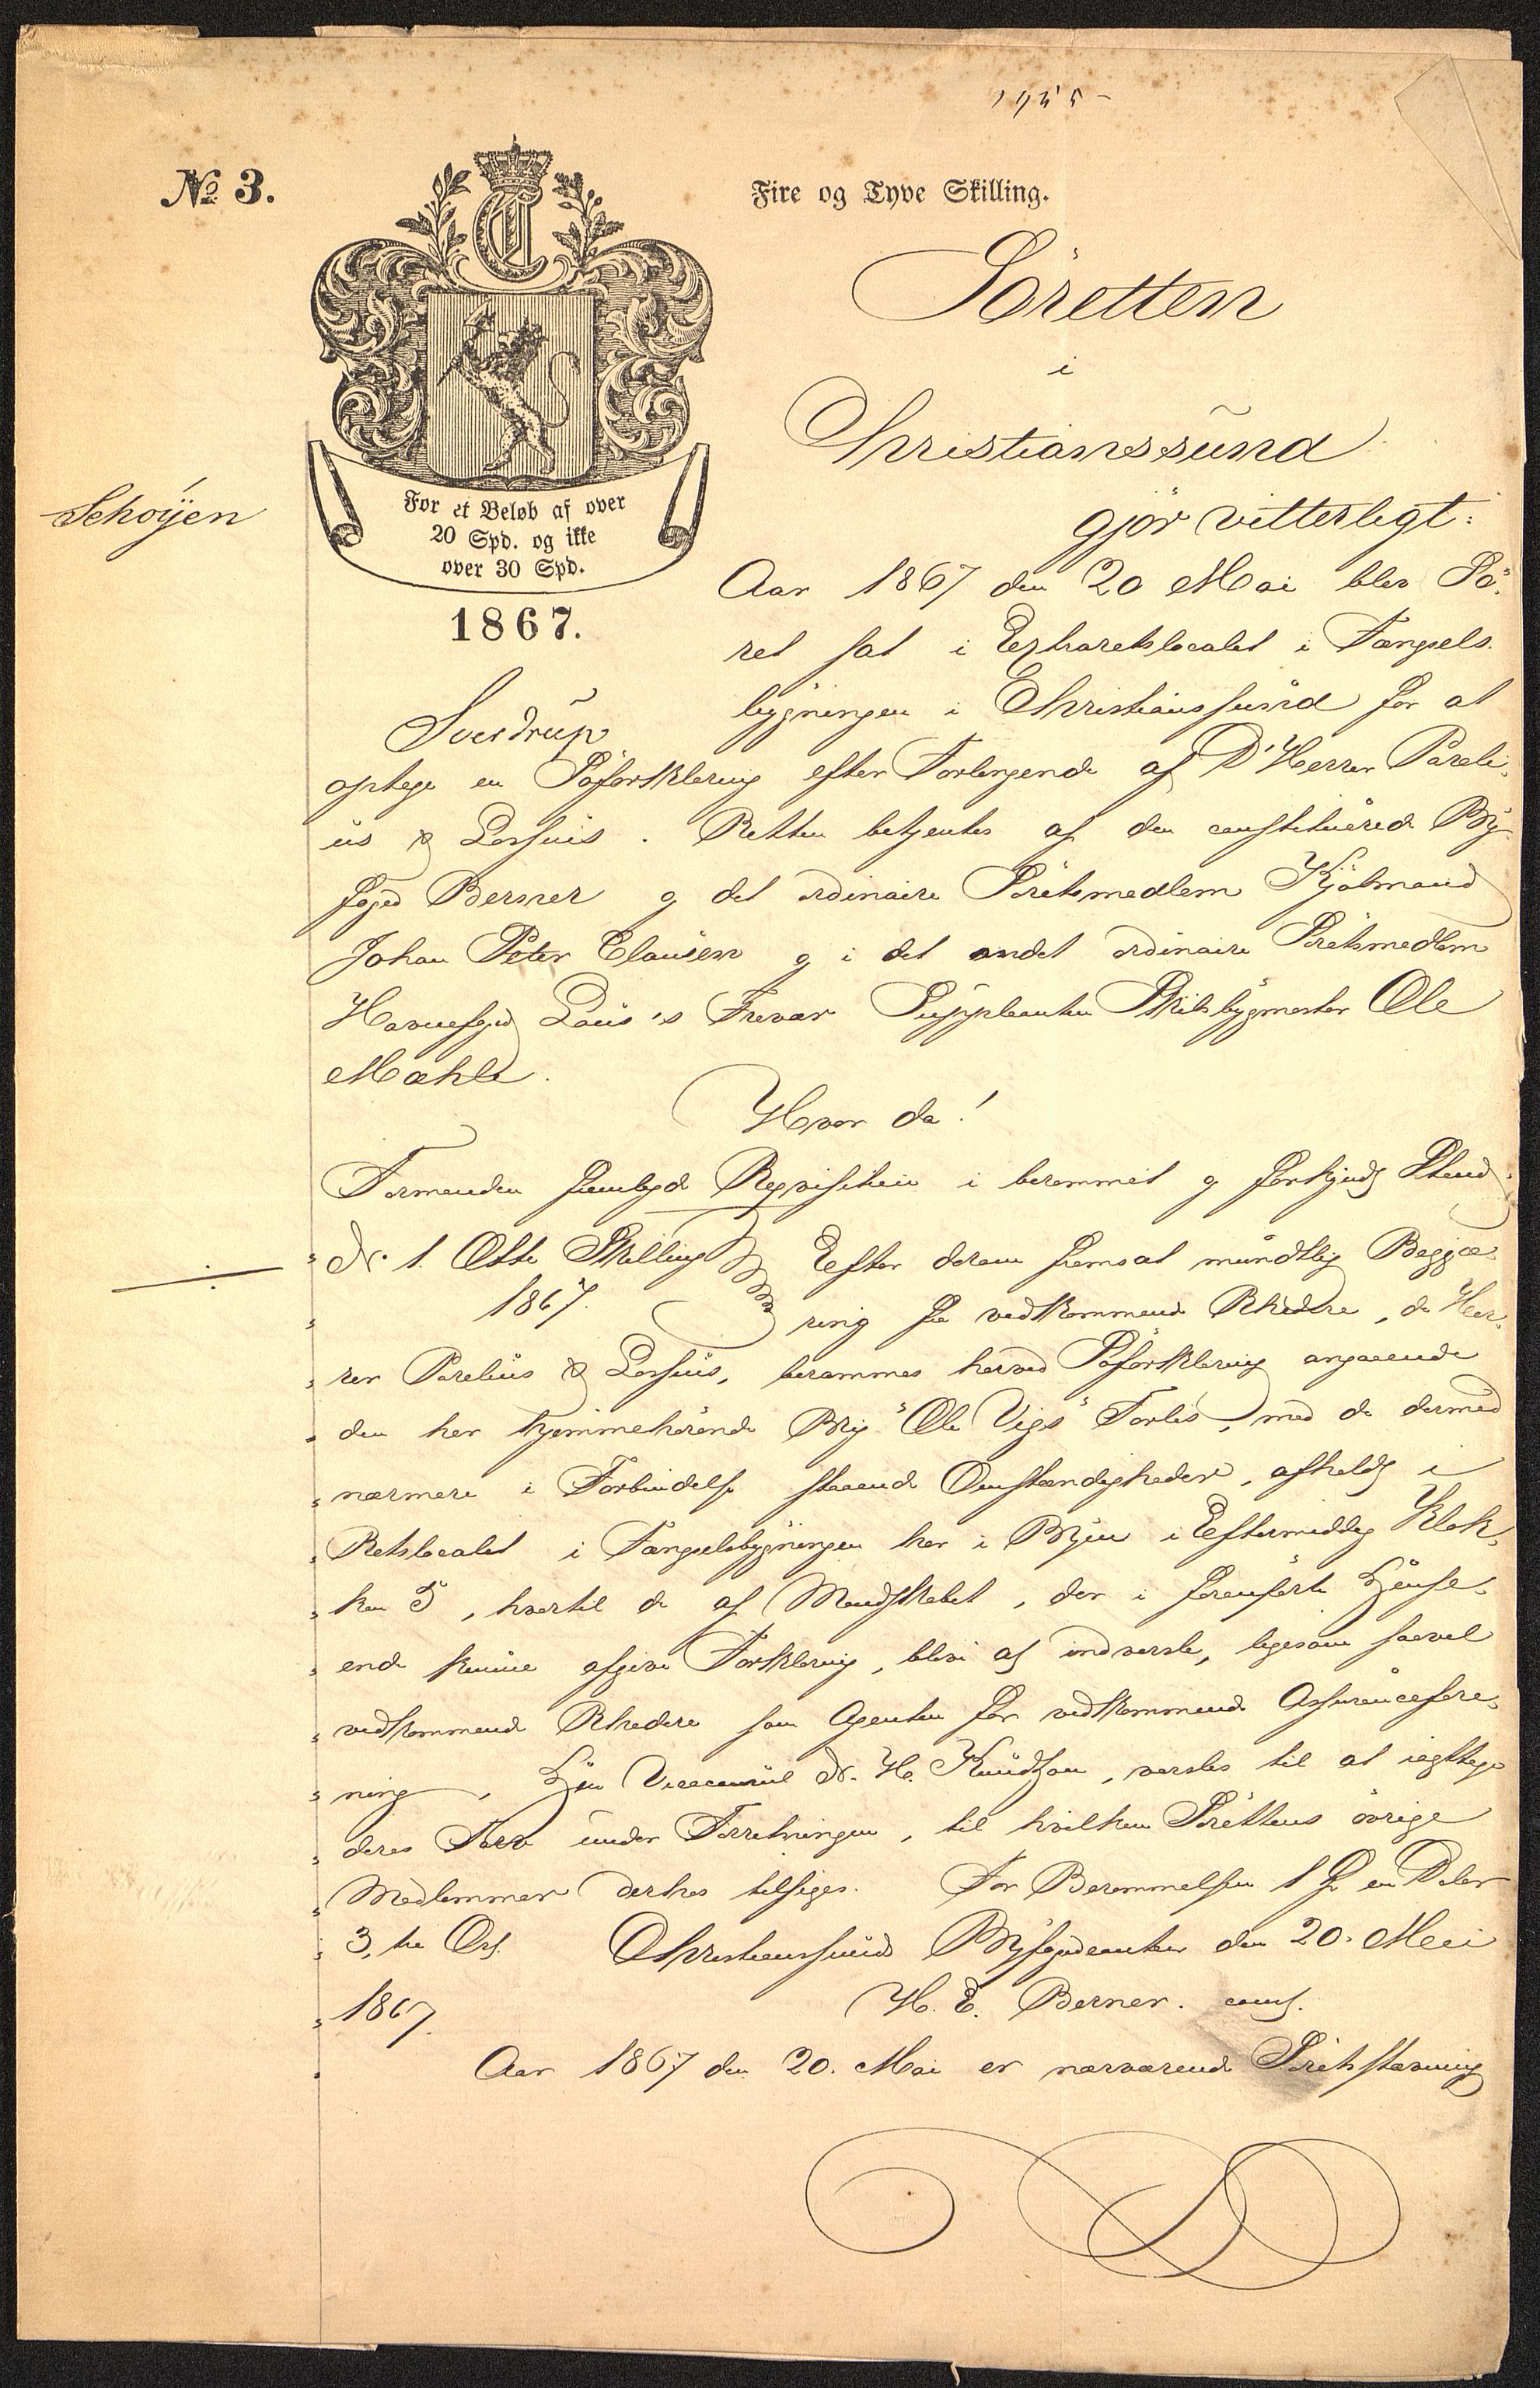 No 3.
Fire og Tyve Skilling.
Söretten
i
Christianssund
gjör vitterligt:
Schöyen
For et Beløb af over
20 Spd. og ikke
over 30 Spd.
1867.
Sverdrup
Aar 1867 den 20 Mai blev Sö-
ret sat i Extraretslocalet i Fængsels-
bygningen i Christianssund for at
optage en Söforklaring efter Forlangende af D'Herrer Pareli-
us & Lossius. Retten betjentes af den constituerede By-
foged Berner og det ordinaire Söretsmedlem Kjöbmand
Johan Peter Clausen og i det andet ordinaire Söretsmedlem
Havnefoged 's Fravær Suppleanten Skibsbygmester Ole
Mæhle.
Hvor da!
Formanden fremlagde Reqvisition i berammet og forkyndt Stand
No 1. Otte Skilling Efter derom fremsat mundtlig Begjæ-
1867. ring fra vedkommende Rhedere, de Her-
rer Parelius & Lossius, berammes herved Söforklaring angaaende
den her hjemmehörende Brig "Ole Vigs" Forlis, med de dermed
nærmere i Forbindelse staaende Omstændigheder, afholdt i
Retslocalet i Fængselsbygningen her i Byen i Eftermiddag Klok-
ken 5, hvortil de af Mandskabet, der i foranförte Hense-
ende kunne afgive Forklaring, blive at indvarsle, ligesom saavel
vedkommende Rhedere som Agenten for vedkommende Assurancefore-
ning, Hr. Viceconsul N. H. Knudtzon, varsles til at iagttage
deres Tarv under Forretningen, til hvilken Sörettens övrige
Medlemmer derhos tilsiges. For Berammelsen 1 en Daler
3, tre Ort. Christianssunds Byfogedcontor den 20. Mai
1867. H. E. Berner. const.
Aar 1867 den 20. Mai er nærværende Söretsstævning